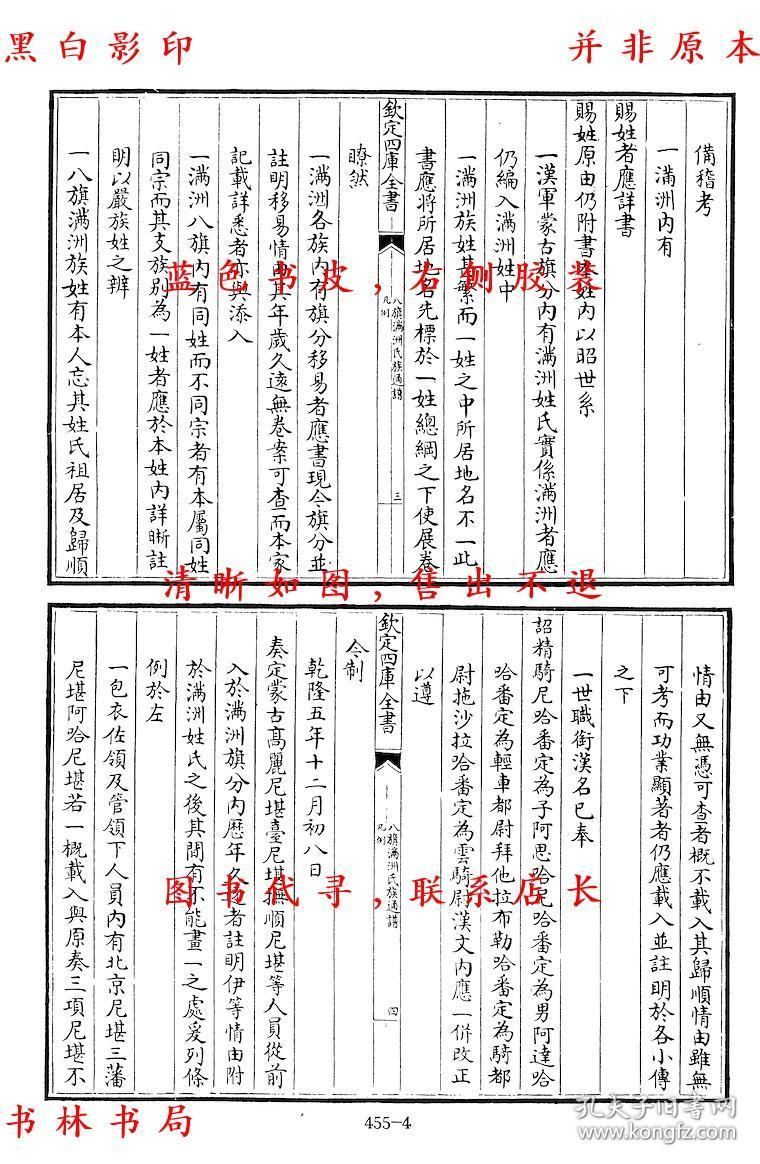 黑白影印
并非原本
備稽考
一滿洲內有
賜姓者應詳書
賜姓原由仍附書本姓內以昭世系
一漢軍蒙古旗分內有滿洲姓氏實係滿洲者應
仍編入滿洲姓中
一滿洲族姓甚繁而一姓之中所居地名不一此
書應將所居地名先標於一姓總綱之下使展卷
欽定四庫全書
八旗滿洲氏族通譜
凡例
三
瞭然
一滿洲各族內有旗分移易者應書現今旗分並
註明移易情由其年歲久遠無卷案可查而本家
記載詳悉者亦與添入
一滿洲八旗內有同姓而不同宗者有本屬同姓
同宗而其支族別為一姓者應於本姓內詳晰註
明以嚴族姓之辨
一八旗滿洲族姓有本人忘其姓氏祖居及歸順
蓝色书皮,右侧胶装
清晰如图,售出不退
情由又無憑可查者概不載入其歸順情由雖無
可考而功業顯著者仍應載入並註明於各小傳
之下
一世職銜漢名已奉
詔精騎尼哈番定為子阿思哈尼哈番定為男阿達哈
哈番定為輕車都尉拜他拉布勒哈番定為騎都
尉拖沙拉哈番定為雲騎尉漢文內應一併改正
以遵
欽定四庫全書
八旗滿洲氏族通譜
凡例
四
令制
乾隆五年十二月初八日
奏定蒙古高麗尼堪臺尼堪撫順尼堪等人員從前
入於滿洲旗分內歷年久遠者註明伊等情由附
於滿洲姓氏之後其間有不能畫一之處爰列條
例於左
一包衣佐領及管領下人員內有北京尼堪三藩
尼堪阿哈尼堪若一概載入與原奏三項尼堪不
图书代寻,联系店长
书林书局
455-4
孔夫子旧书网
www.kongfz.com